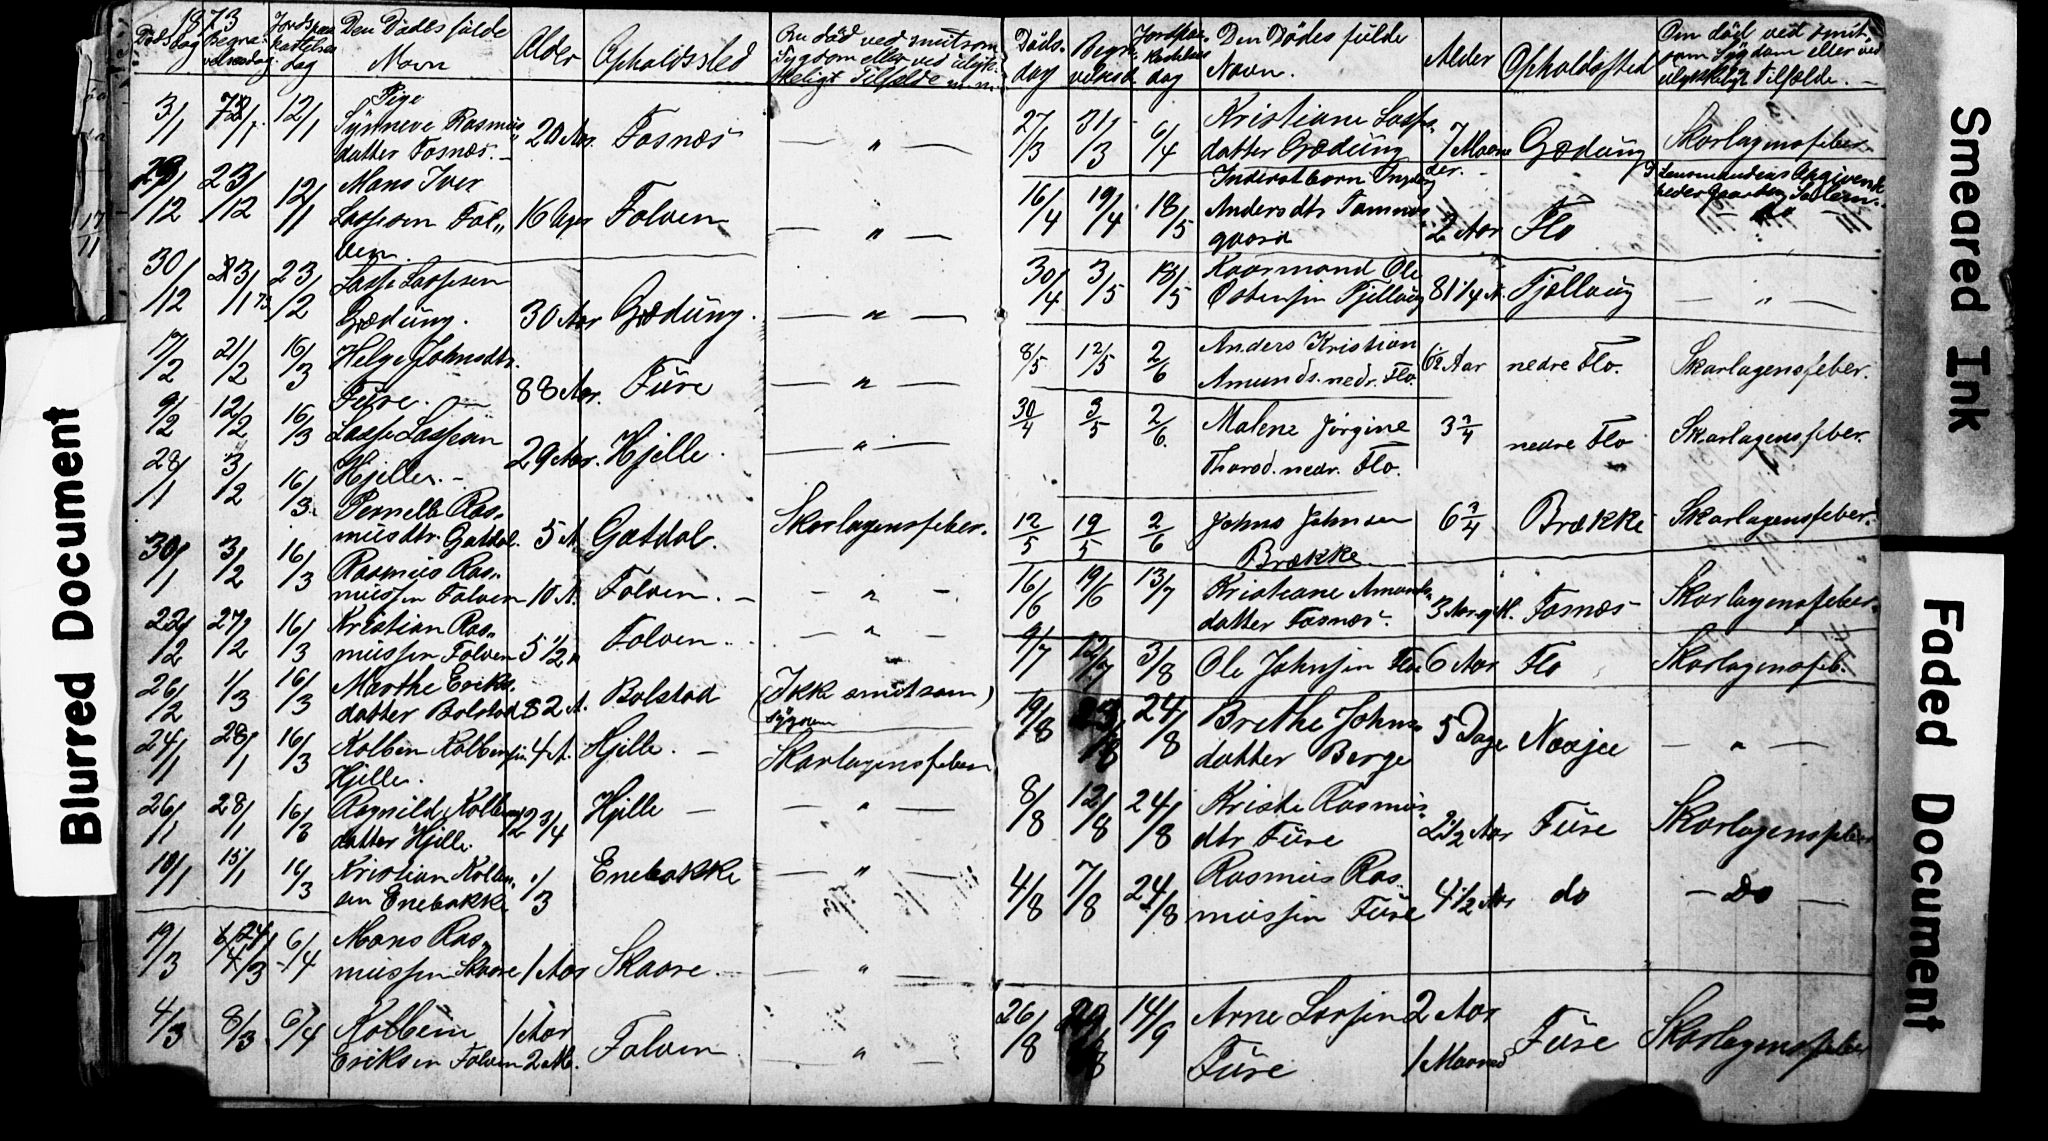 1873
Døds dag
Begravelsesdag
Jordspaakastelses dag
Den Dødes fulde Navn
Alder
Opholdssted
Om død ved smitsom Sygdom eller ved ulykkeligt Tilfælde m.m.
3/1 12/1 Pige
Synneve Rasmus datter Fosnæs. 20 Aar. Fosnæs — " —
/12 23/12 12/1 Mons Iver
Lassesen Folven 16 Aar Folven — " —
30/12 /1 73 23/2 Lasse Lassesen
Grædung. 30 Aar Grædung. — " —
17/2 21/2 16/3 Helge Johnsdtr.
Fure. 88 Aar. Fure — " —
9/2 12/2 16/3 Lasse Lassesen
Hjelle. 29 Aar. Hjelle. — " —
28/1 3/2 16/3 Pernelle Rasmusdtr. Gatdal. 5 A. Gatdal. Skarlagensfeber.
30/1 3/2 16/3 Rasmus Rasmussen Folven 10 A. Folven. — " —
22/2 27/2 16/3 Kristian Rasmussen Folven 5 1/2 " Folven. — " —
26/2 1/3 16/3 Marthe Eriksdatter Bolstad 82 A. Bolstad (Ikke smitsom) Sygdom
24/1 28/1 16/3 Kolben Kolbensen
Hjelle. 4 A. Hjelle. — Skarlagensfeber
26/1 28/1 16/3 Ragnild Kolbensdatter Hjelle. 3/4 Hjelle — " —
10/1 15/1 16/3 Kristian Kolbensen Enebakke 1/3 Enebakke — " —
19/3 24/3 6/4 Mons Rasmussen Skaare 1 Aar Skaare. — " —
4/3 8/3 6/4 Kolbein
Eriksen Folven 1 Aar 2 M. Folven — " —
Døds dag
Begravelsesd.
Jordspaakastelses dag
Den Dødes fulde Navn.
Alder
Opholdssted
Om død ved smitsom Sygdom eller ved ulykkeligt Tilfælde. —
27/3 31/3 6/4 Kristiane Lassedatter Grædung 7 Maaneder. Grædung Skarlagensfeber
16/4 19/4 18/5 Inderstbarn
Andersdtr Tomasgaard 2 Aar Flo
30/4 3/5 18/5 Kaarmand Ole
Østensen Fjellaug 81 1/4 A. Fjellaug — " —
8/5 12/5 2/6 Anders Kristian
Amunds. nedr. Flo. 6 1/2 Aar nedre Flo. Skarlagensfeber.
30/4 3/5 2/6 Malene Jørgine
Thorsd. nedr. Flo. 3 3/4 nedre Flo Skarlagensfeber.
12/5 19/5 2/6 Johns Johnsen
Brække 6 3/4 Brække Skarlagensfeber.
16/6 19/6 13/7 Kristiane Amundsdatter Fosnæs. 3 Aar 9 M. Fosnæs Skarlagensfeber.
9/7 12/7 3/8 Ole Johnsen Flo 6 Aar Flo Skarlagensfeb.
19/8 24/8 Brethe Johnsdatter Berge 5 Dage — " —
8/8 12/8 24/8 Kriste Rasmusdtr Fure 2 1/2 Aar Fure Skarlagensfeber
4/8 7/8 24/8 Rasmus Rasmussen Fure 4 1/2 Aar do — Do —
26/8 14/9 Arne Larsen
Fure 2 Aar
1 Maaned Fure Skarlagensfeber
Blurred Document
Smeared Ink
Faded Document